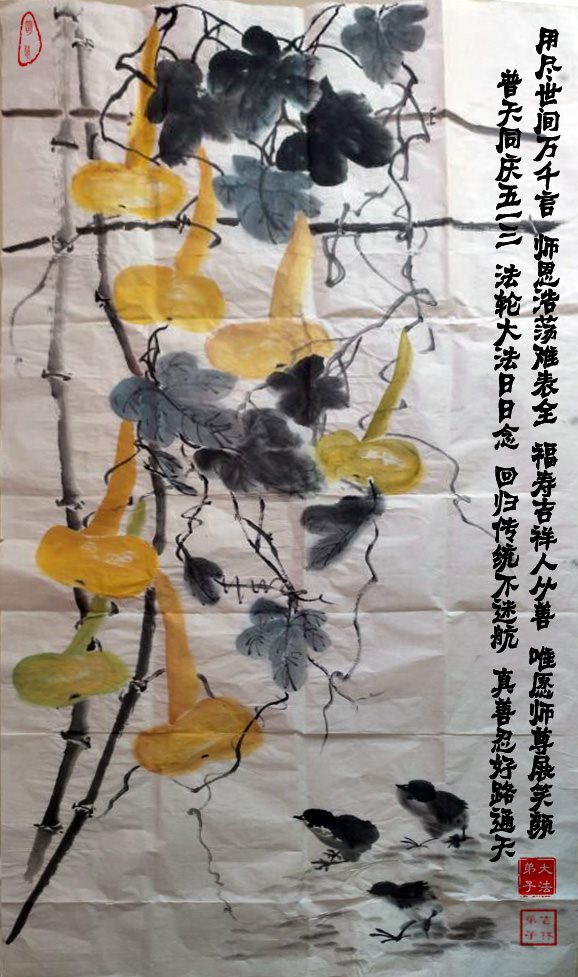 用尽世间万千言 师恩浩荡难表全 福寿吉祥人从善 唯愿师尊展笑颜
普天同庆五一三 法轮大法日日念 回归传统不迷航 真善忍好路通天
大法弟子
吉林弟子